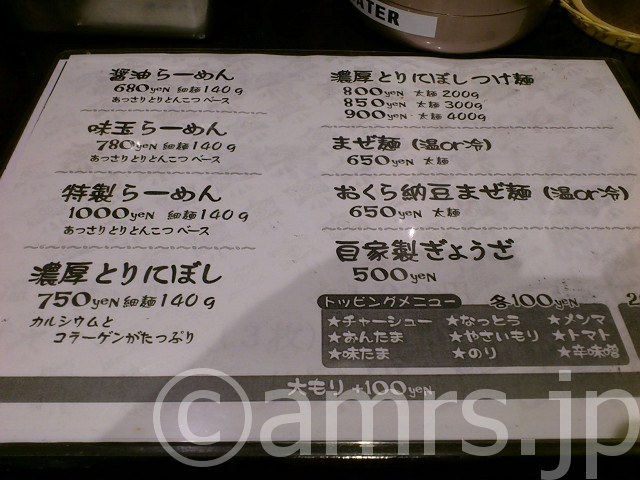 WATER
醤油らーめん
680yeN 細麺140g
あっさりとりとんこつベース
味玉らーめん
780yeN 細麺140g
あっさりとりとんこつベース
特製らーめん
1000yeN 細麺140g
あっさりとりとんこつベース
濃厚とりにぼし
750yeN 細麺140g
カルシウムと
コラーゲンがたっぷり
濃厚とりにぼしつけ麺
800yeN 太麺200g
850yeN 太麺300g
900yeN 太麺400g
まぜ麺(温or冷)
650yeN 太麺
おくら納豆まぜ麺(温or冷)
650yeN 太麺
自家製ぎょうざ
500yeN
トッピングメニュー 各100yeN
★チャーシュー ★なっとう ★メンマ
★おんたま ★やさいもり ★トマト
★味たま ★のり ★辛味噌
大もり+100yeN
©amrs.jp